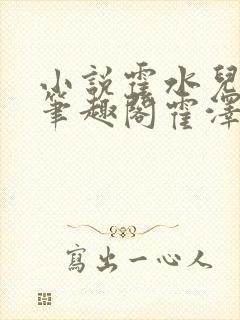 小說霍水兒
筆趣閣霍澤
寫出一心人